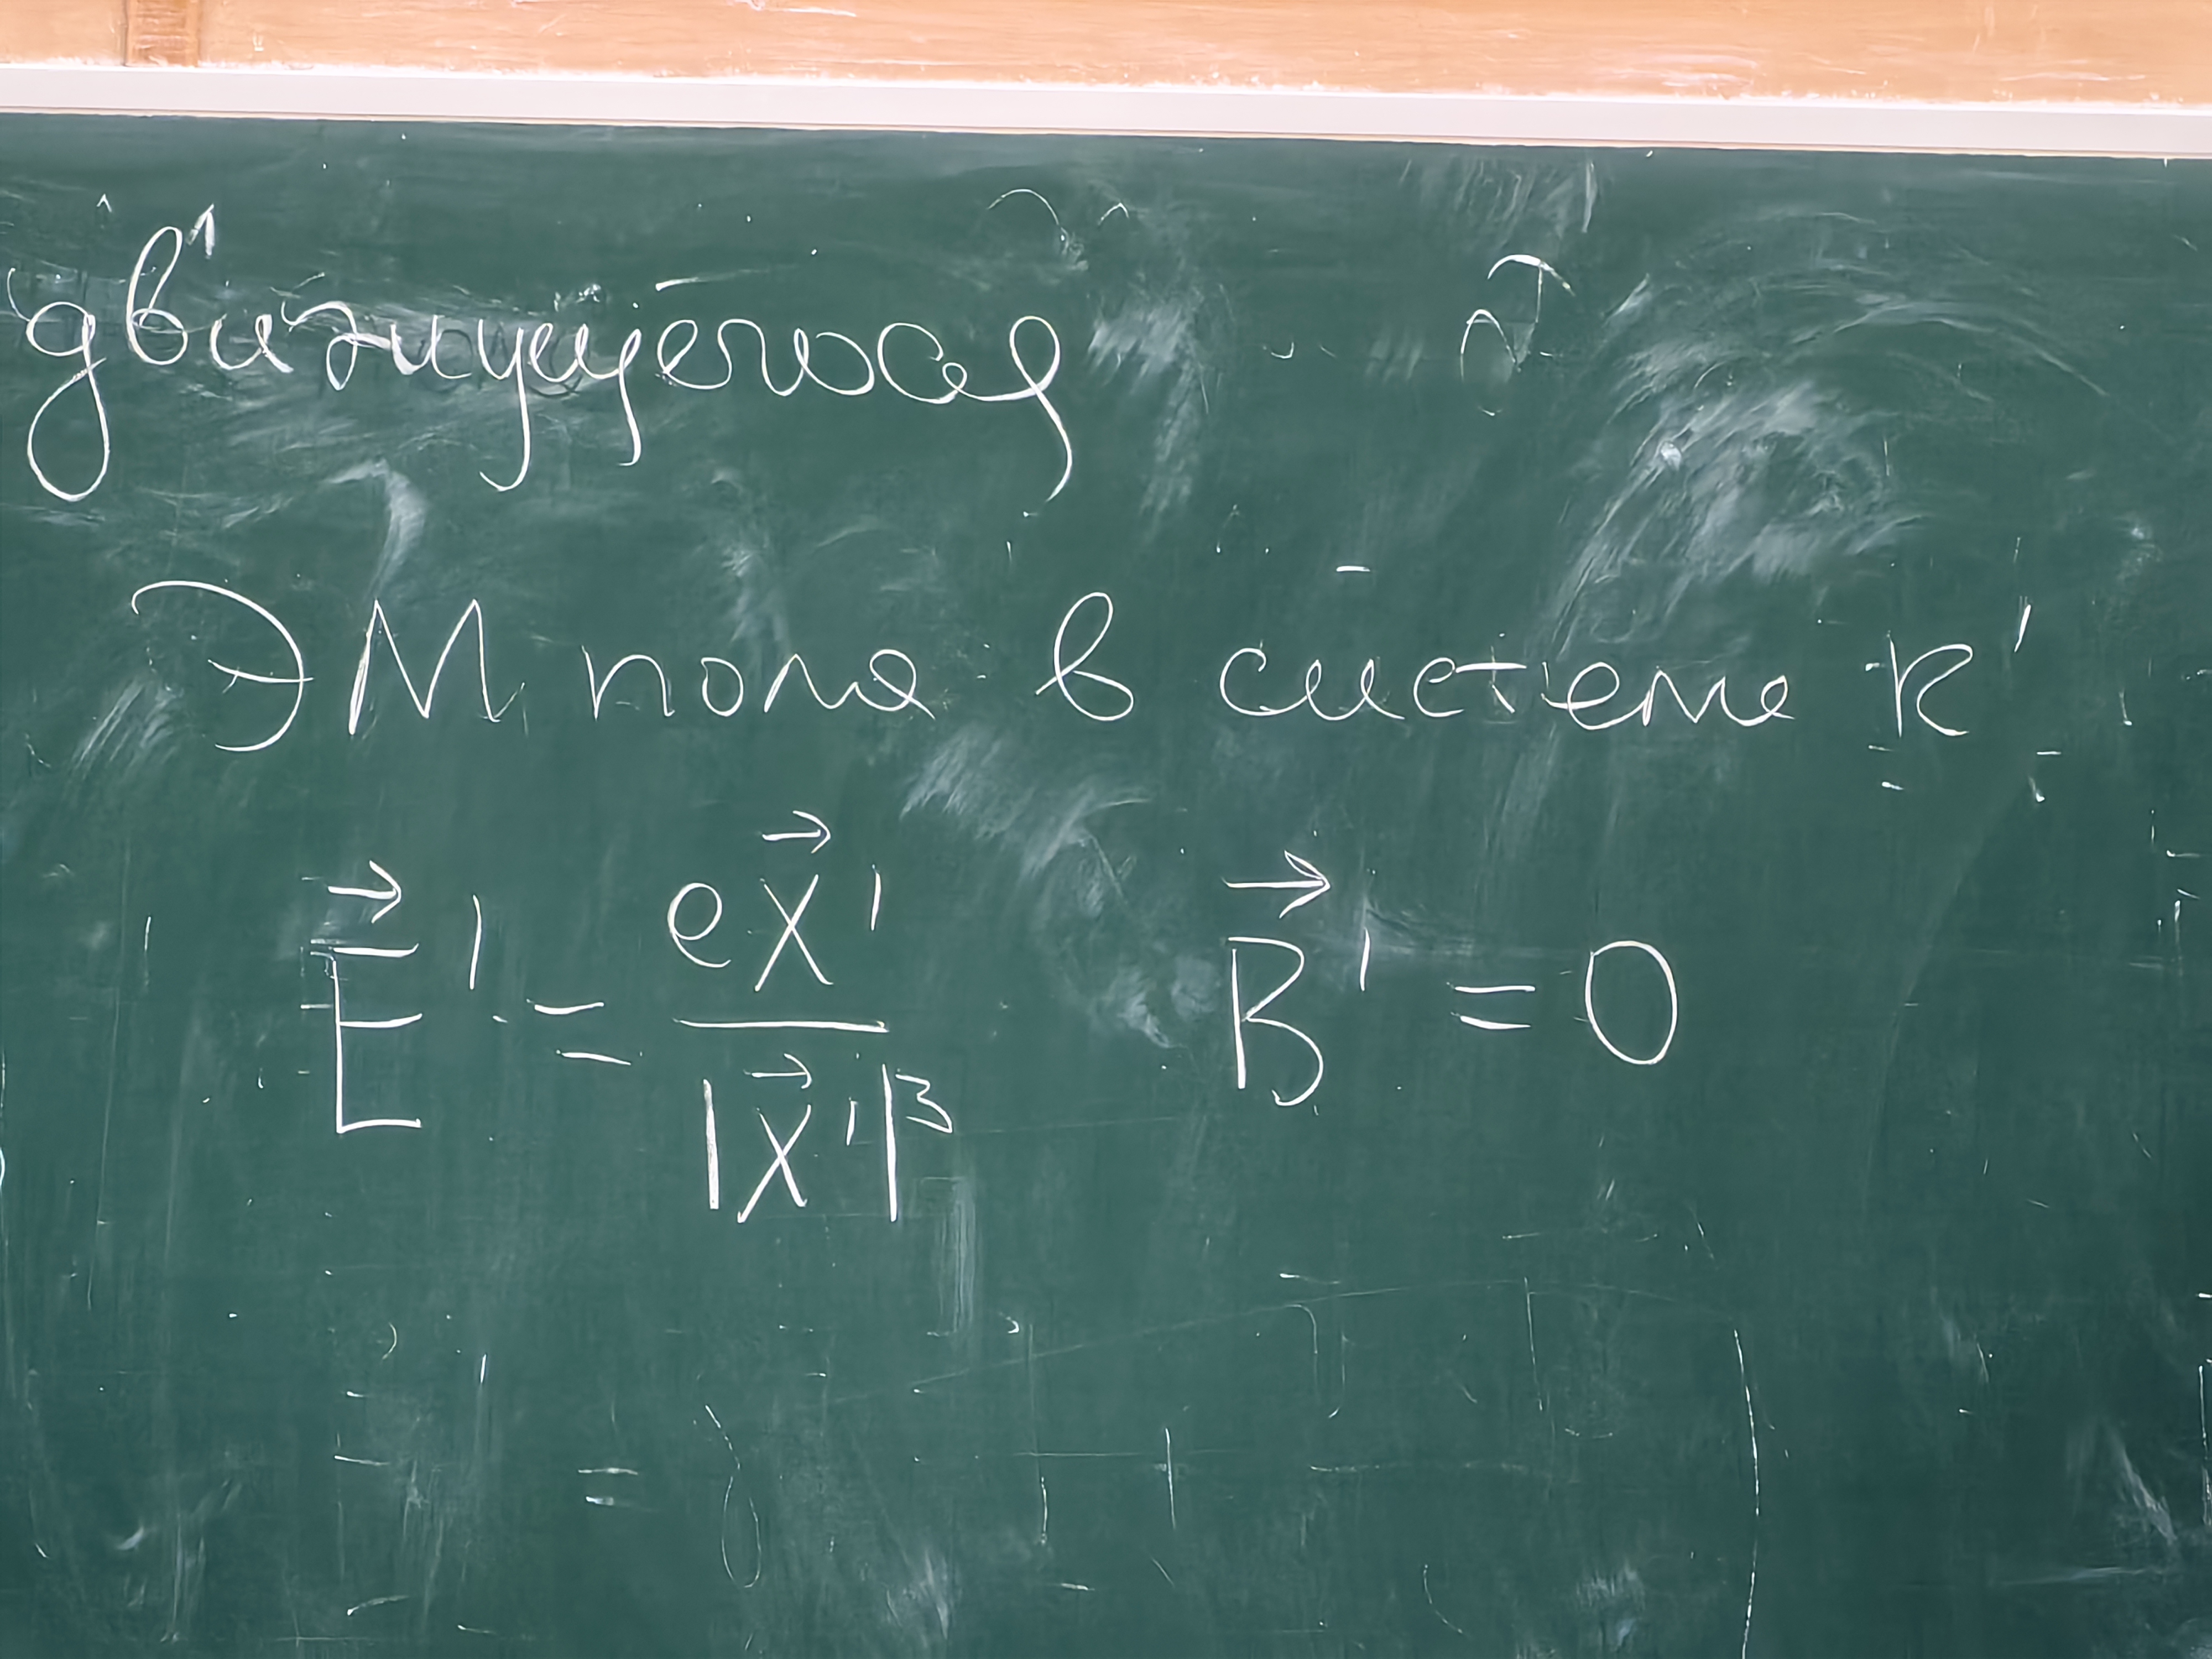 движущегося
ЭМ поля в системе K'
$\vec{E}' = \frac{e\vec{x}'}{|\vec{x}'|^3}$ $\vec{B}' = 0$